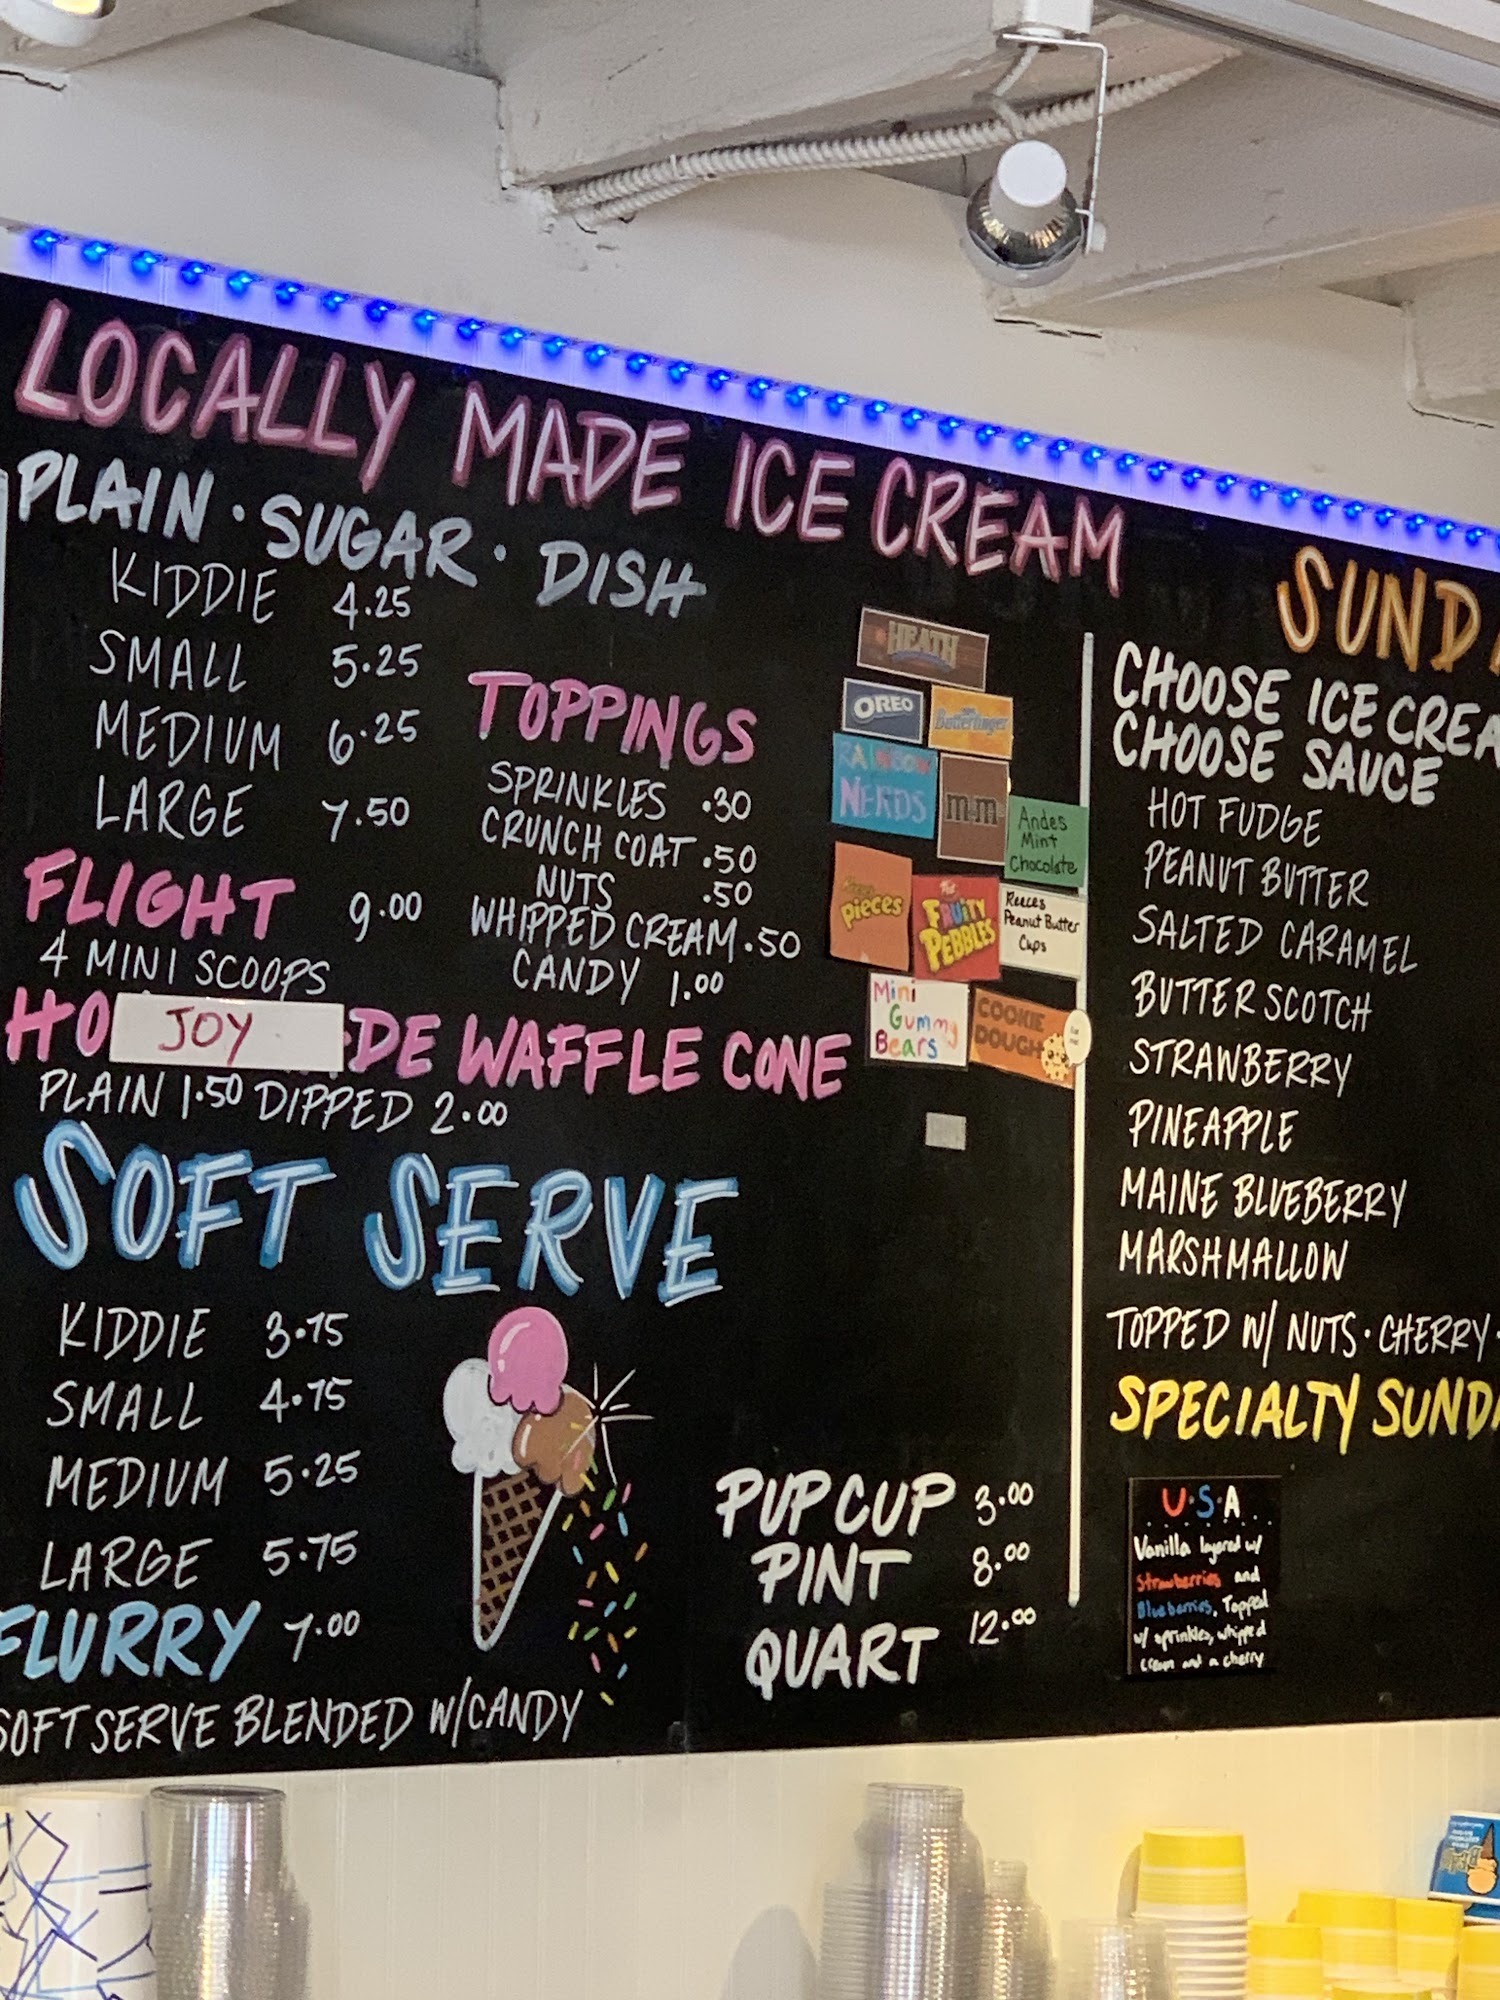 LOCALLY MADE ICE CREAM
PLAIN · SUGAR · DISH
KIDDIE 4.25
SMALL 5.25
MEDIUM 6.25
LARGE 7.50
FLIGHT 9.00
4 MINI SCOOPS
TOPPINGS
SPRINKLES .30
CRUNCH COAT .50
NUTS .50
WHIPPED CREAM .50
CANDY 1.00
HEATH
OREO
Butterfinger
RAINBOW
NERDS
m&m's
Andes
Mint
Chocolate
Reese's
Pieces
FRUITY
PEBBLES
Reeces
Peanut Butter
Cups
Mini
Gummy
Bears
COOKIE
DOUGH
HO JOY DE WAFFLE CONE
PLAIN 1.50 DIPPED 2.00
SOFT SERVE
KIDDIE 3.75
SMALL 4.75
MEDIUM 5.25
LARGE 5.75
FLURRY 7.00
SOFT SERVE BLENDED W/CANDY
PUP CUP 3.00
PINT 8.00
QUART 12.00
SUNDA
CHOOSE ICE CREA
CHOOSE SAUCE
HOT FUDGE
PEANUT BUTTER
SALTED CARAMEL
BUTTERSCOTCH
STRAWBERRY
PINEAPPLE
MAINE BLUEBERRY
MARSHMALLOW
TOPPED W/ NUTS · CHERRY ·
SPECIALTY SUNDA
U·S·A
Vanilla layered w/
Strawberries and
Blueberries, Topped
w/ sprinkles, whipped
cream and a cherry